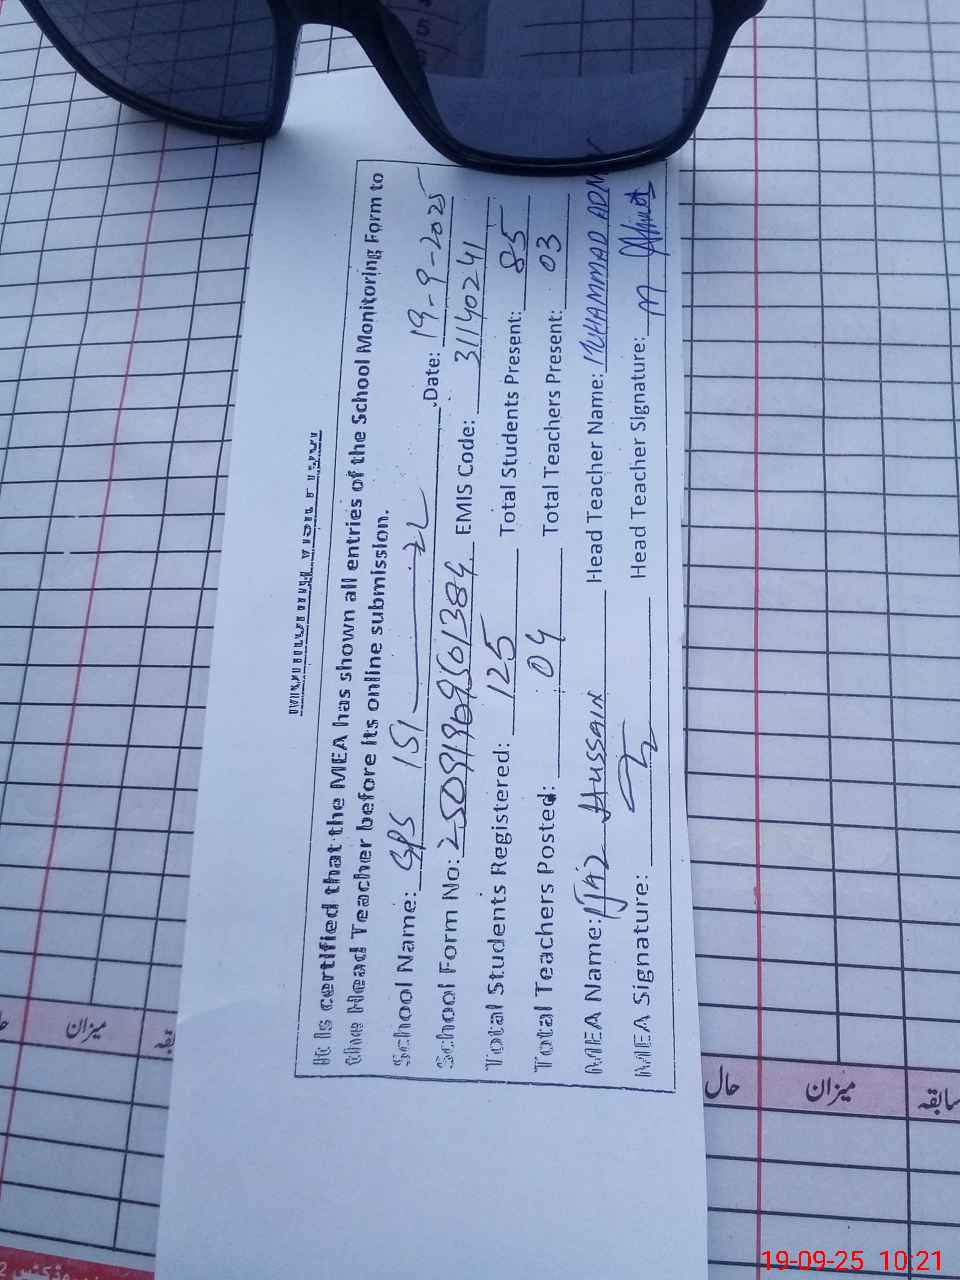 It is certified that the MEA has shown all entries of the School Monitoring Form to
the Head Teacher before its online submission.
School Name: GPS 151 2L Date: 19-9-2025
School Form No: EMIS Code: 31140241
Total Students Registered: 125 Total Students Present: 85
Total Teachers Posted: 04 Total Teachers Present: 03
MEA Name: Hussain Head Teacher Name: MUHAMMAD
MEA Signature: Head Teacher Signature:
میزان
حال میزان سابقہ
5
19-09-25 10:21